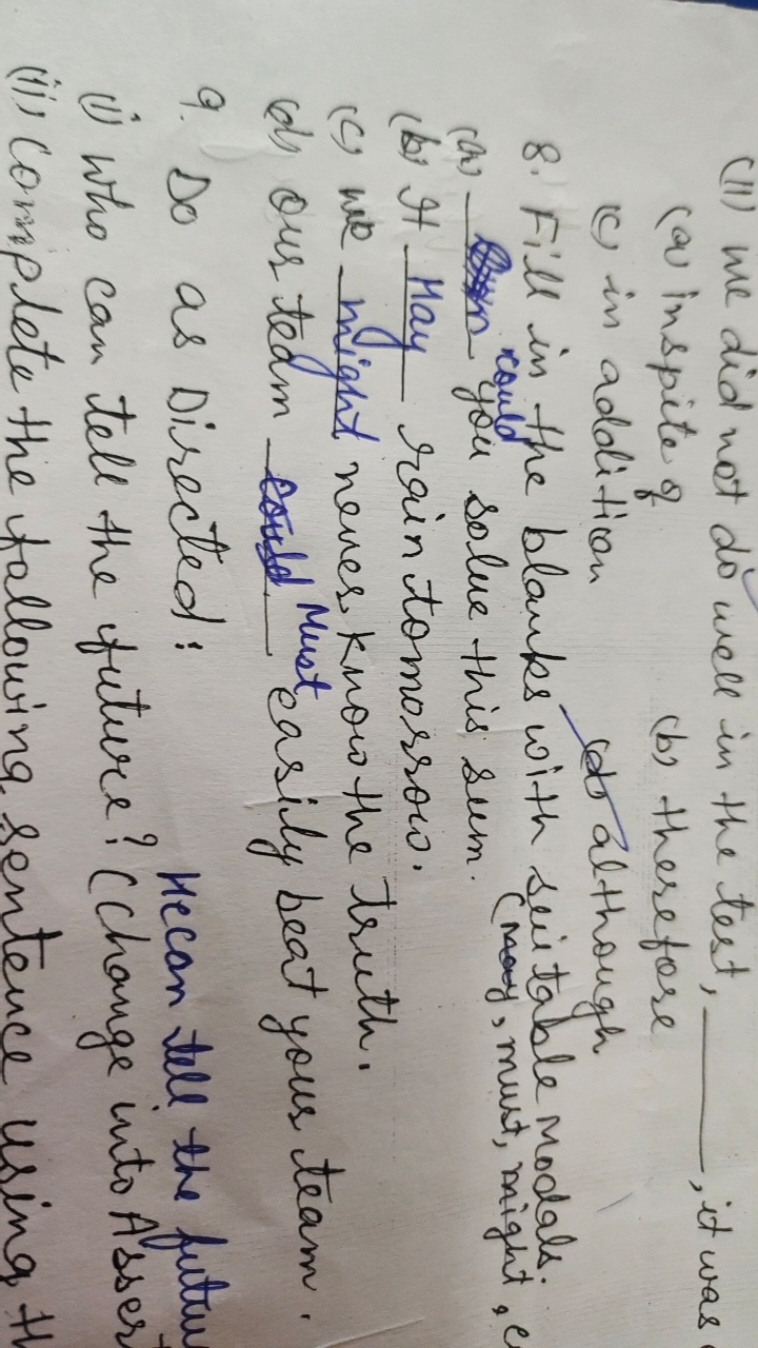 (11) we did not do well in the test, ________, it was
(a) inspite of (b) therefore
(c) in addition (d) although
8. Fill in the blanks with suitable modals.
(may, must, might,
(a) ____ could you solve this sum.
(b) It May rain tomorrow.
(c) we might never know the truth.
(d) our team could Must easily beat your team.
9. Do as Directed:
He can tell the futu
(i) who can tell the future? (change into Assert
(ii) complete the following sentence using th